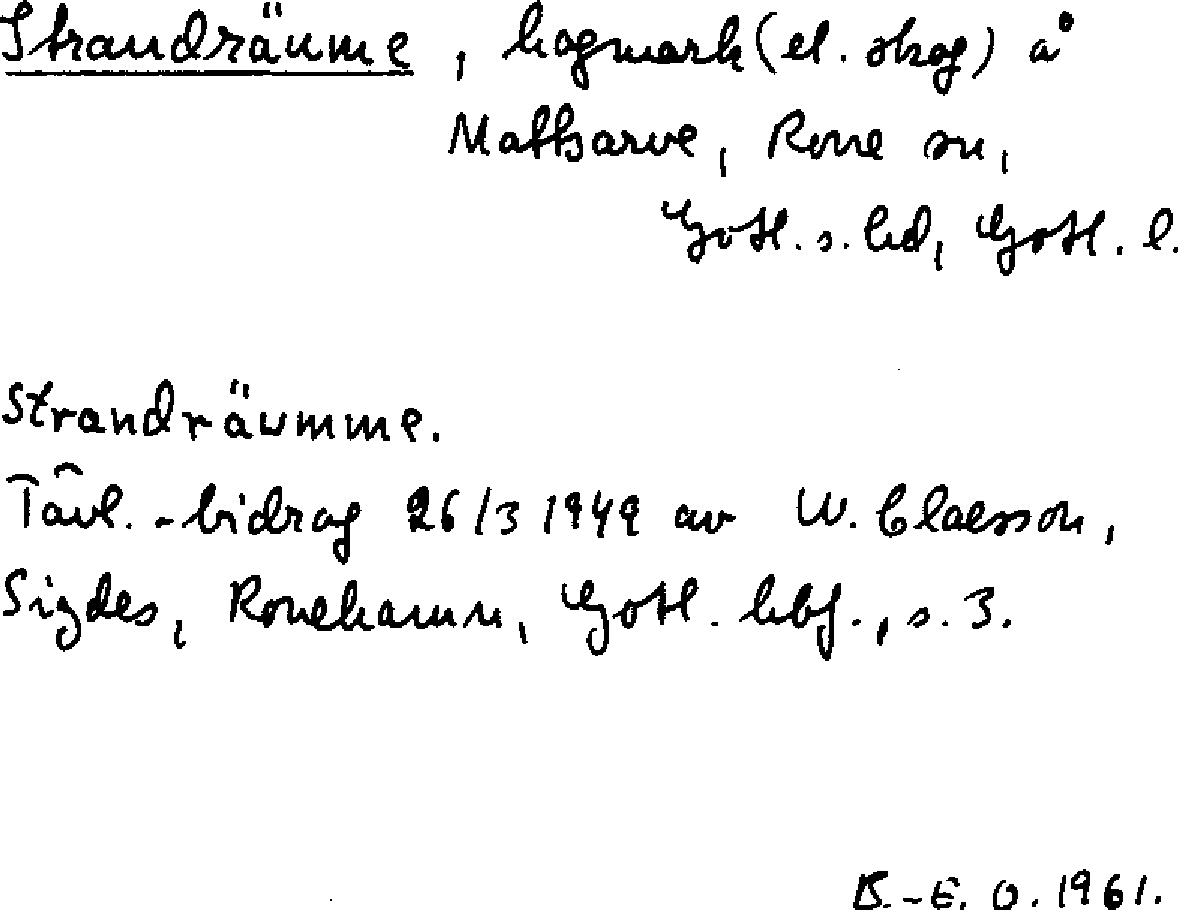 Strandräume, hagmark (el. skog) å
Matsarve, Rone sn,
Gotl. s. hd, Gotl. l.
Strandräumme.
Tävl.-bidrag 26/3 1949 av W. Claesson,
Sigdes, Ronehamn, Gotl. hbf., s. 3.
B.-E. O. 1961.